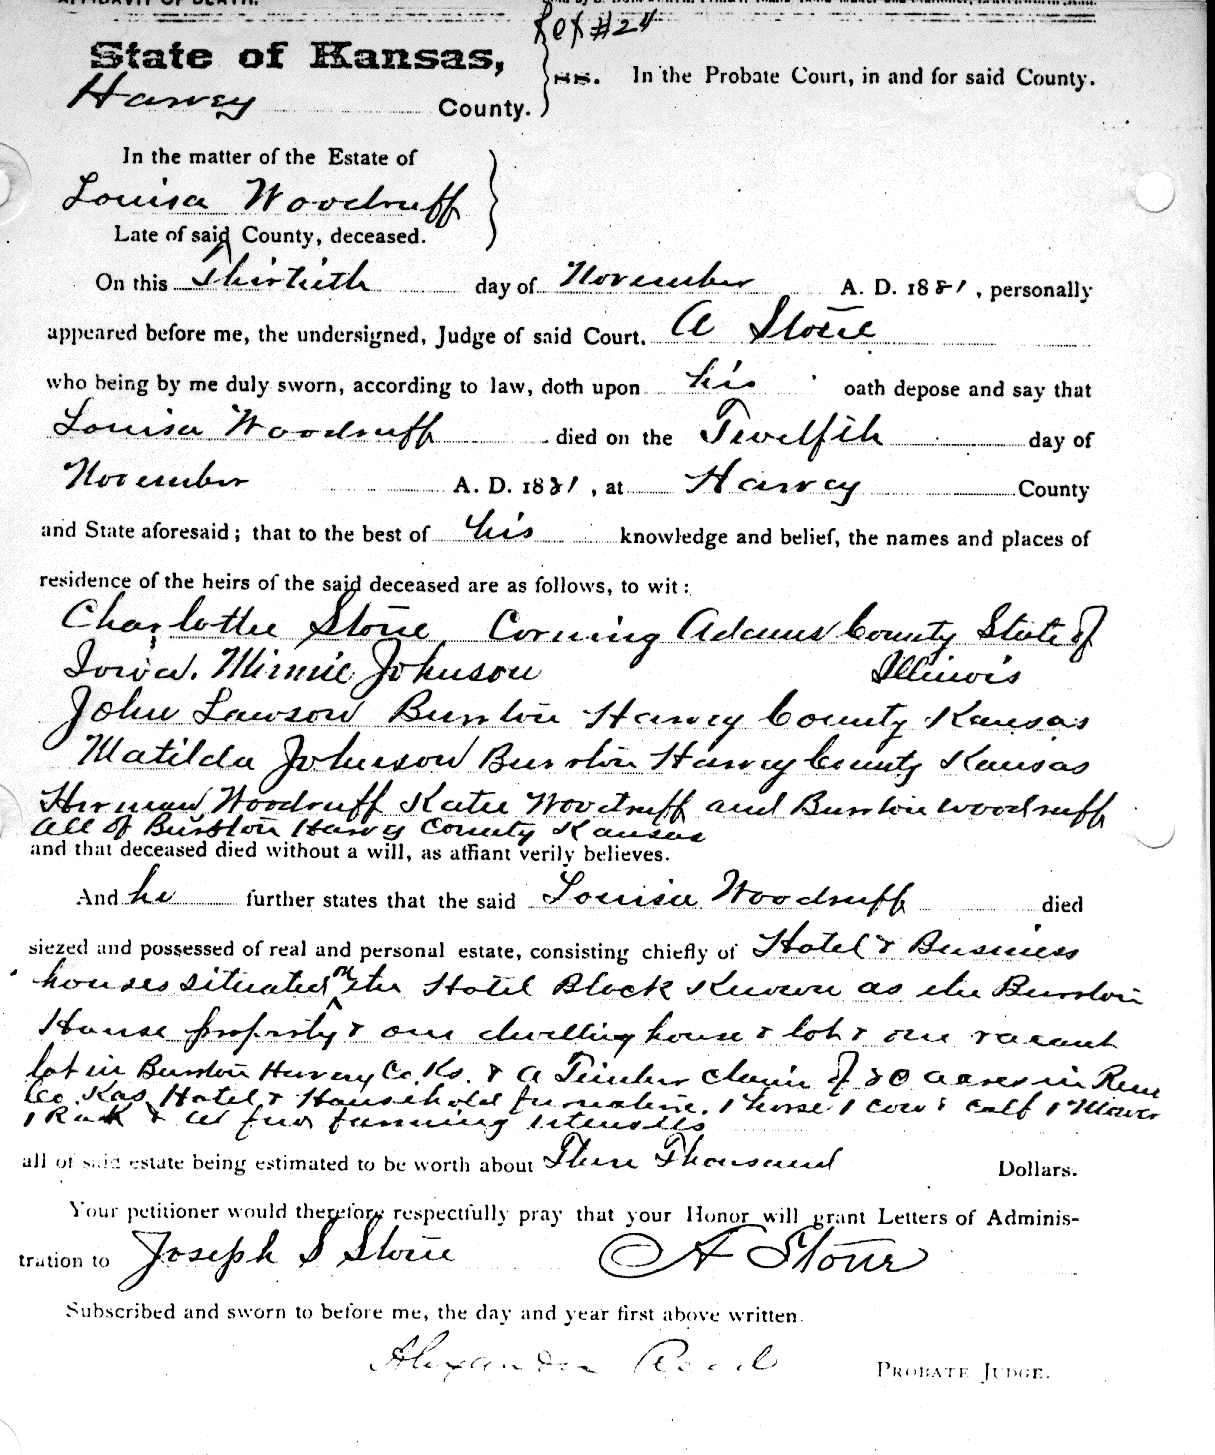 AFFIDAVIT OF DEATH.
#24
State of Kansas,
Harvey County. ss. In the Probate Court, in and for said County.
In the matter of the Estate of
Louisa Woodruff
Late of said County, deceased.
On this Thirtieth day of November A. D. 1881, personally
appeared before me, the undersigned, Judge of said Court, A Stone
who being by me duly sworn, according to law, doth upon his oath depose and say that
Louisa Woodruff died on the Twelfth day of
November A. D. 1881, at Harvey County
and State aforesaid; that to the best of his knowledge and belief, the names and places of
residence of the heirs of the said deceased are as follows, to wit:
Charlotte Stone Corning Adams County State of
Iowa. Minnie Johnson Illinois
John Lawson Burrton Harvey County Kansas
Matilda Johnson Burrton Harvey County Kansas
Herman Woodruff Katie Woodruff and Burrton Woodruff
all of Burrton Harvey County Kansas
and that deceased died without a will, as affiant verily believes.
And he further states that the said Louisa Woodruff died
siezed and possessed of real and personal estate, consisting chiefly of Hotel & Business
houses situated on the Hotel Block Known as the Burrton
House property & one dwelling house & lot & one vacant
lot in Burrton Harvey Co. Ks. & a Timber claim of 80 acres in Reno
Co. Kas Hotel & Household furnature. 1 horse 1 cow & calf 1 Mower
1 Rak & all farming utensills
all of said estate being estimated to be worth about Three Thousand Dollars.
Your petitioner would therefore respectfully pray that your Honor will grant Letters of Adminis-
tration to Joseph S Stone A Stone
Subscribed and sworn to before me, the day and year first above written.
Alexander Reed PROBATE JUDGE.